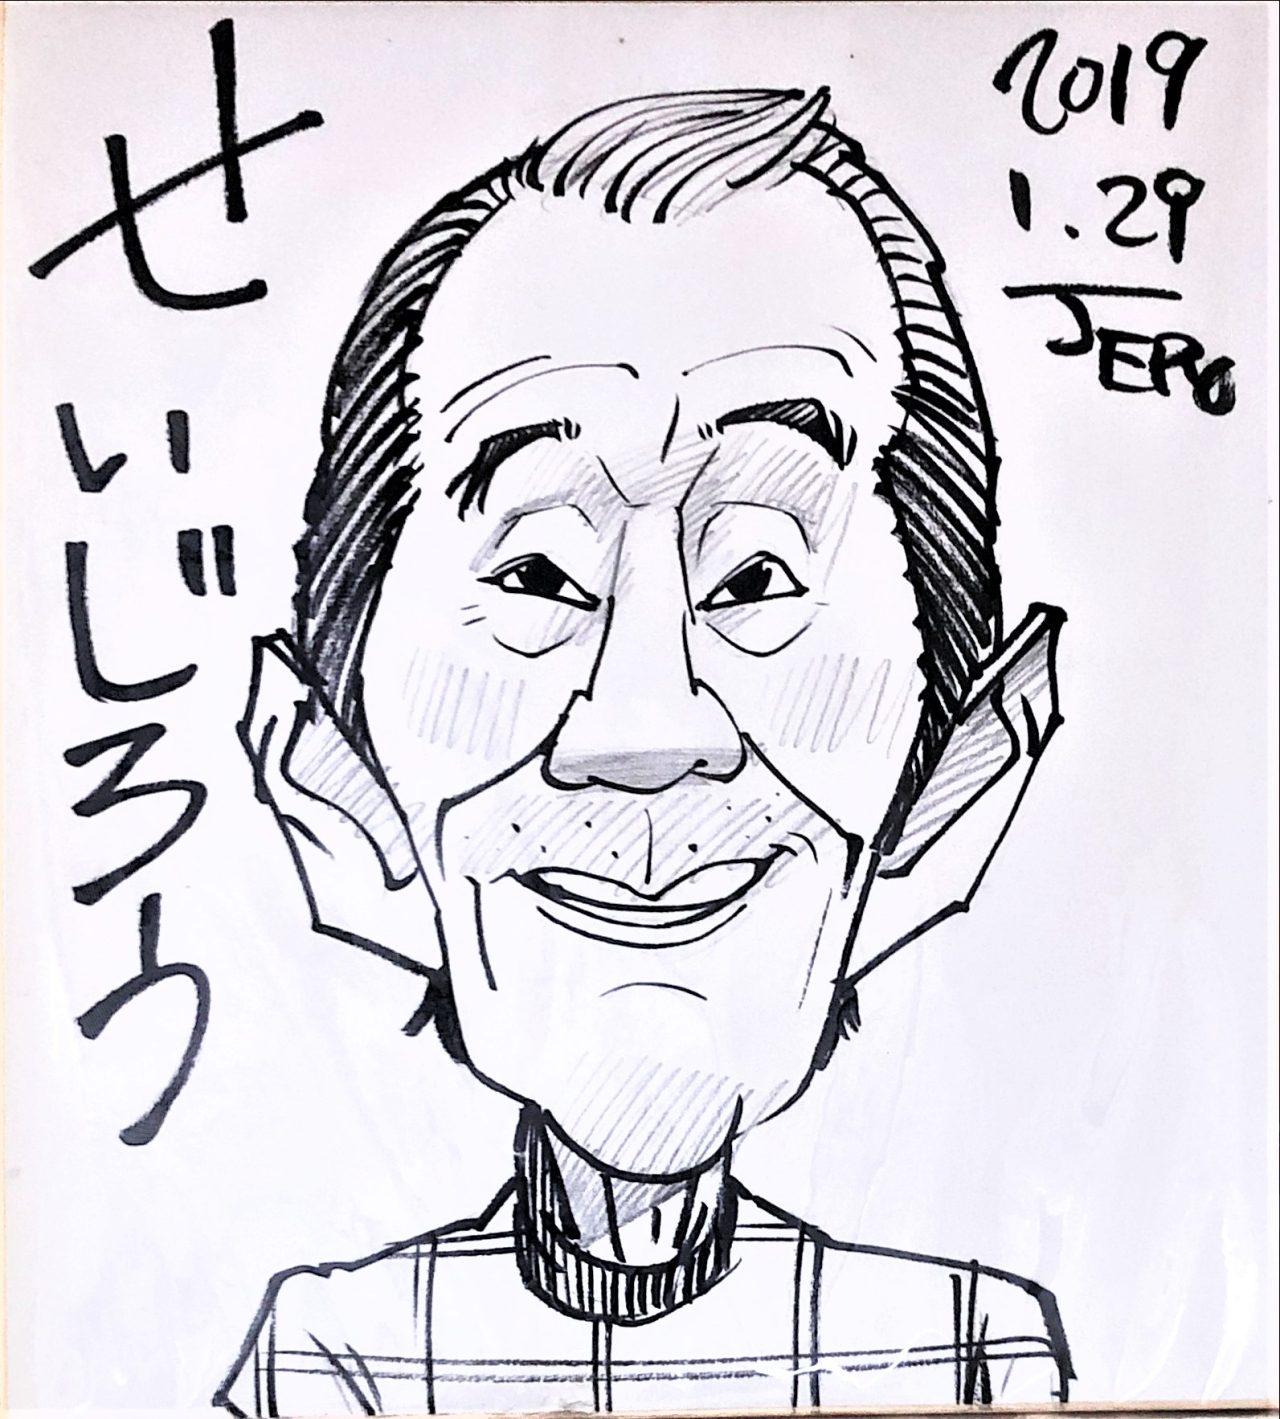 せいじろう
2019
1.29
JERO